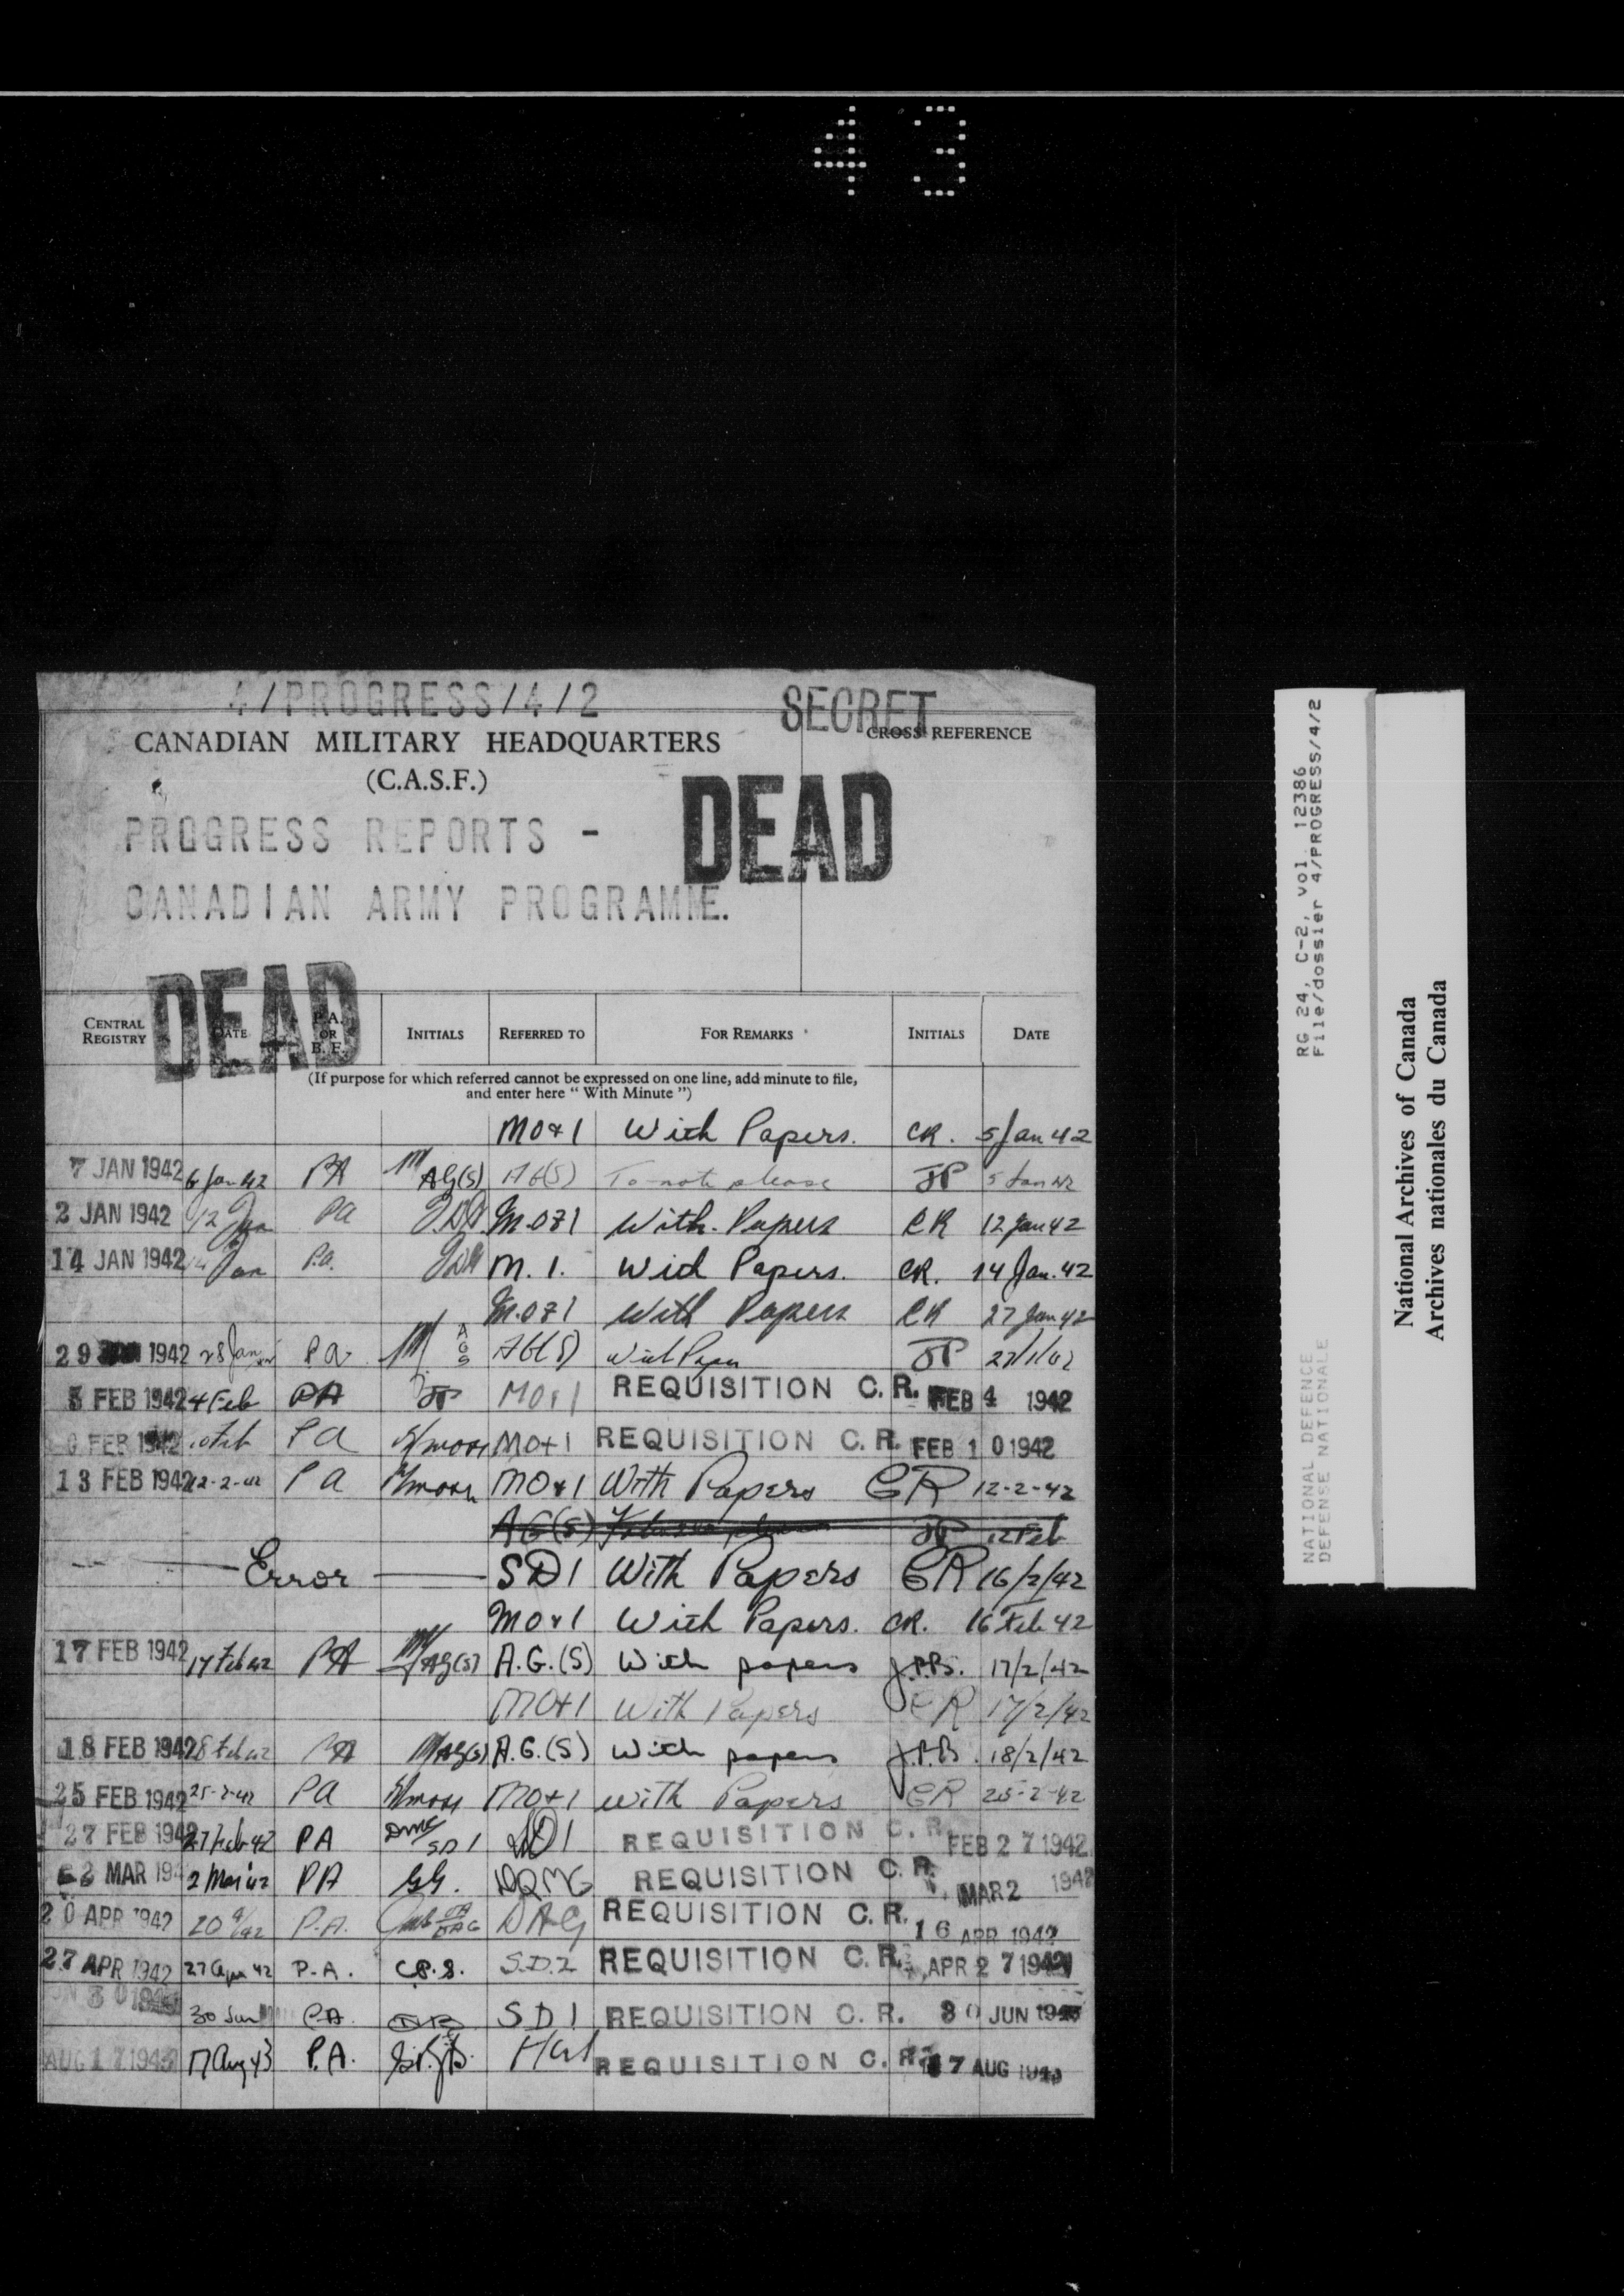 43
4/PROGRESS/4/2
SECRET
CROSS REFERENCE
CANADIAN MILITARY HEADQUARTERS
(C.A.S.F.)
DEAD
PROGRESS REPORTS -
CANADIAN ARMY PROGRAMME.
DEAD
CENTRAL REGISTRY DATE P.A. OR B.F. INITIALS REFERRED TO FOR REMARKS INITIALS DATE
(If purpose for which referred cannot be expressed on one line, add minute to file,
and enter here " With Minute ")
MO&1 With Papers. CR. 5 Jan 42
7 JAN 1942 6 Jan 42 PA AG(S) AG(S) To note please JP 5 Jan 42
2 JAN 1942 12 Jan PA M.O&1 With Papers CR 12 Jan 42
14 JAN 1942 14 Jan P.A. M.1. With Papers. CR. 14 Jan. 42
M.O&1 With Papers CR 27 Jan 42
29 1942 28 Jan PA AGS AG(S) With Paper JP
FEB 1942 4 Feb PA JP MO&1 REQUISITION C.R. FEB 4 1942
FEB 1942 10 Feb PA MO+1 REQUISITION C.R. FEB 10 1942
13 FEB 1942 12-2-42 PA MO&1 With Papers CR 12-2-42
AG(S) JP 12 Feb
Error SD1 With Papers CR 16/2/42
MO&1 With Papers. CR. 16 Feb 42
17 FEB 1942 17 Feb 42 PA AG(S) A.G.(S) With papers J.P.B. 17/2/42
MO+1 With Papers CR 17/2/42
18 FEB 1942 18 Feb 42 PA AG(S) A.G.(S) With papers J.P.B. 18/2/42
25 FEB 1942 25-2-42 PA MO+1 With Papers CR 25-2-42
27 FEB 1942 27 Feb 42 PA SD1 SD1 REQUISITION C.R. FEB 27 1942
MAR 194 2 Mar 42 PA GG. DQMG REQUISITION C.R. MAR 2 1942
20 APR 1942 20 4/42 P.A. DAG REQUISITION C.R. 16 APR 1942
27 APR 1942 27 Apr 42 P.A. C.P.S. S.D.2 REQUISITION C.R. APR 27 1942
30 30 Jun PA SD1 REQUISITION C.R. 30 JUN
AUG 17 1943 17 Aug 43 P.A. REQUISITION C.R. 17 AUG 1943
RG 24, C-2, vol. 12386
File/dossier 4/PROGRESS/4/2
NATIONAL DEFENCE
DEFENSE NATIONALE
National Archives of Canada
Archives nationales du Canada